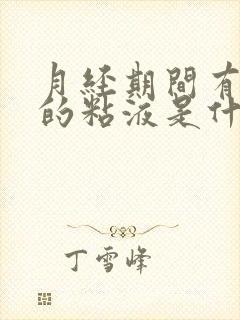 月經期間有
的粘液是什
丁雪峰